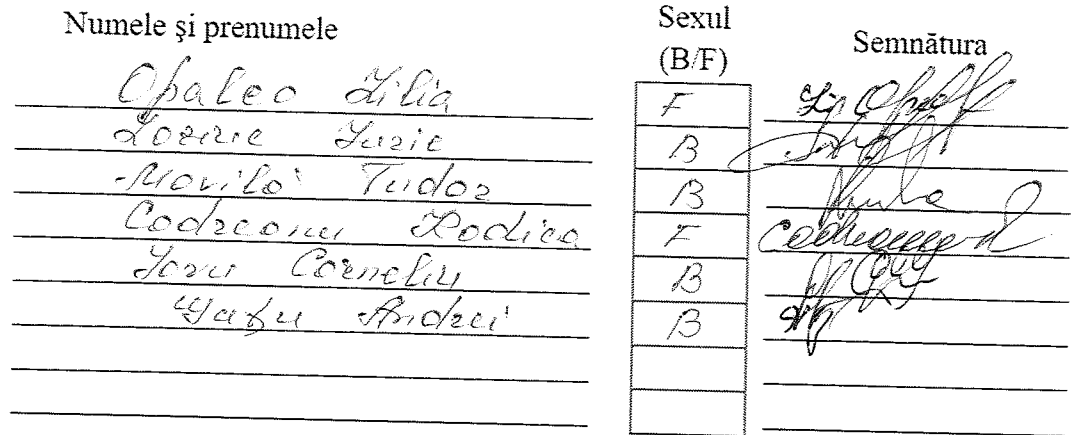 Numele şi prenumele Sexul (B/F) Semnătura
Opaleo Lilia F
Lozirie Iurie B
Movilă Tudor B
Codreanu Rodica F Codreanu
Iovu Corneliu B
Andrei B